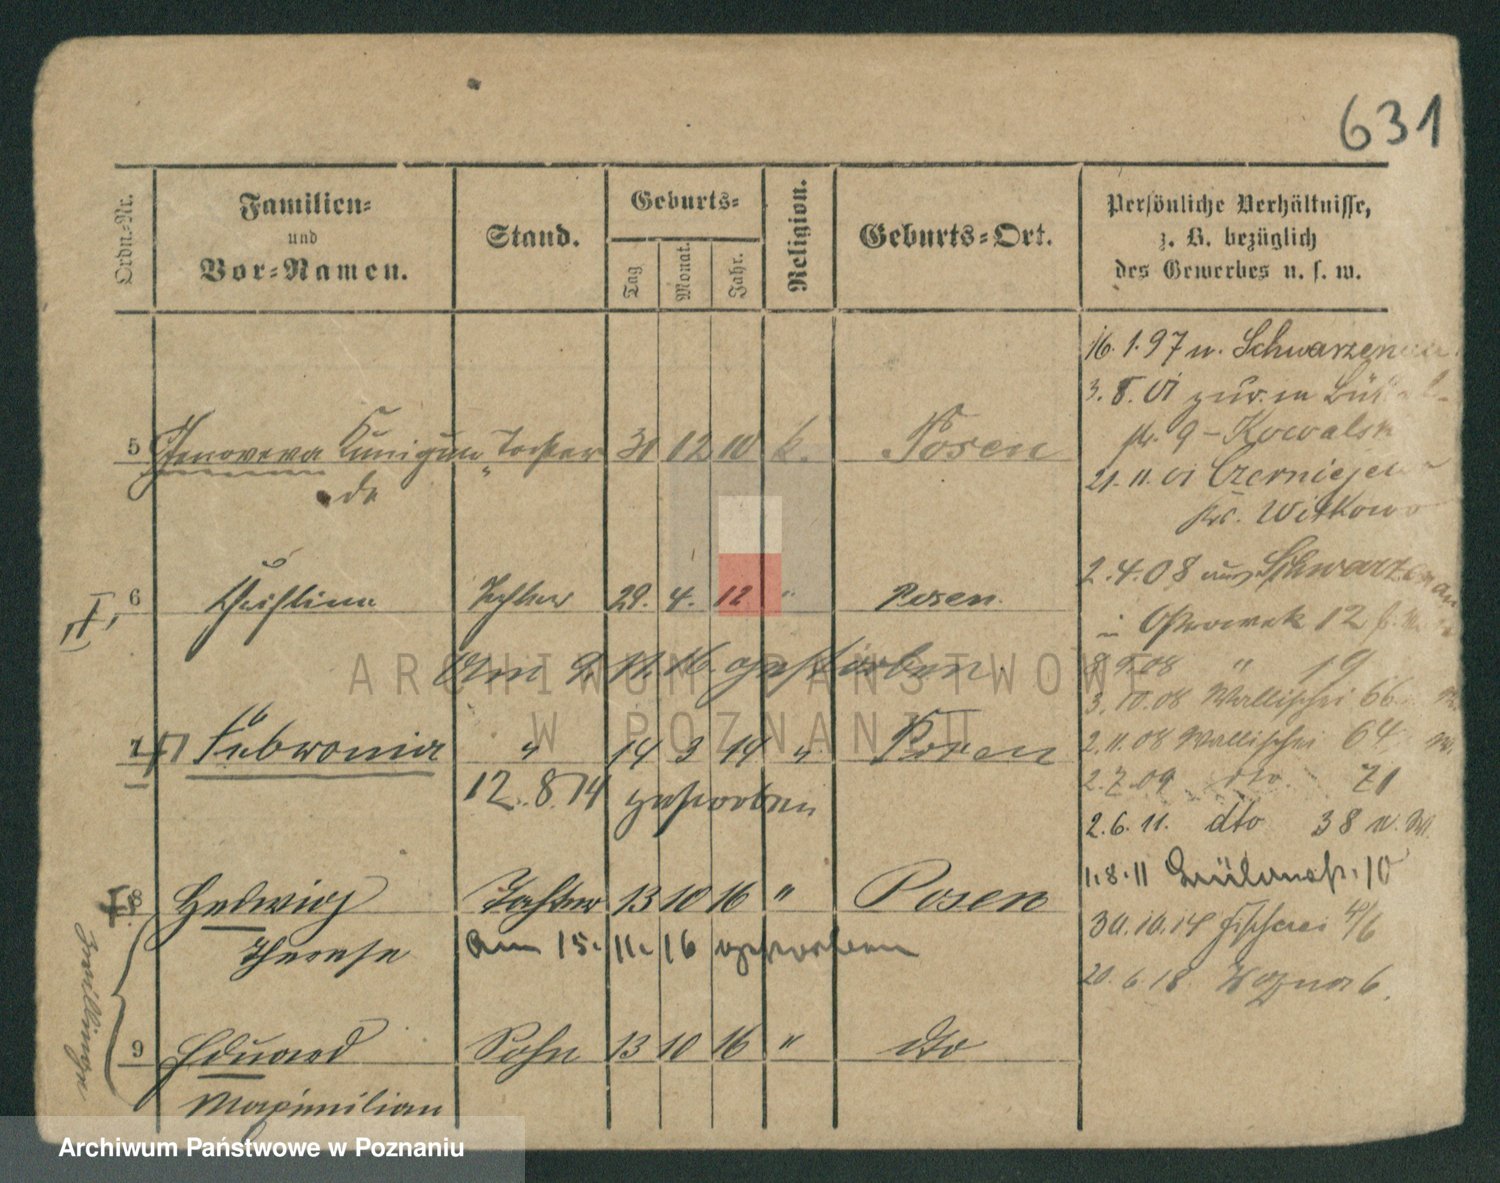 631
Ordn.-Nr.
Familien-
und
Vor-Namen.
Stand.
Geburts-
Tag
Monat.
Jahr.
Religion.
Geburts-Ort.
Persönliche Verhältnisse,
z. B. bezüglich
des Gewerbes u. s. w.
16.1.97 n. Schwarzenau
3.8.01 zur. in
9 - Kowalski
21.11.01 Czerniejewo
Krs. Witkowo
5 Genoveva Kunigun- Tochter 30 12 10 k. Posen
de
2.4.08 aus Schwarzenau
Ostrowek 12
6 Christine Tochter 29. 4. 12 " Posen.
Am 9.11.16. gestorben.
8.5.08 " 19
3.10.08 Wallischei 66
7 Febronia " 14 3 14 " Posen
12.8.14 gestorben
2.11.08 Wallischei 64
2.7.09 dto 71
2.6.11. dto 38
1.8.11 10
8 Hedwig Tochter 13 10 16 " Posen
Therese am 15. 11. 16 gestorben
30.10.14 Fischerei 4/6
20.6.18 Wozna 6.
Zwillinge
9 Eduard Sohn 13 10 16 " dto
Maximilian
ARCHIWUM PAŃSTWOWE
W POZNANIU
Archiwum Państwowe w Poznaniu